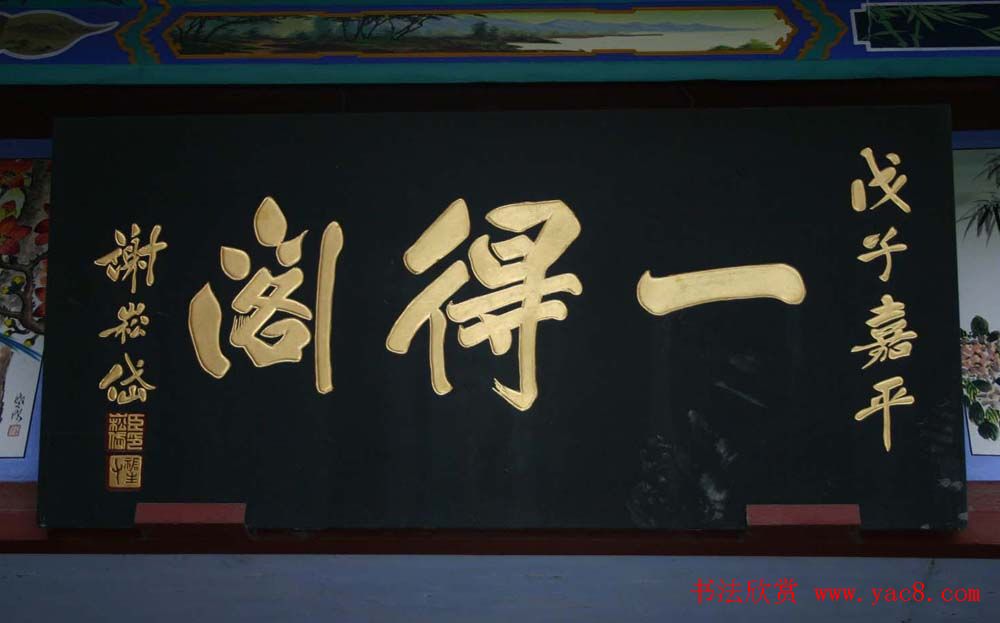 戊子嘉平
一得阁
謝崧岱
书法欣赏 www.yac8.com